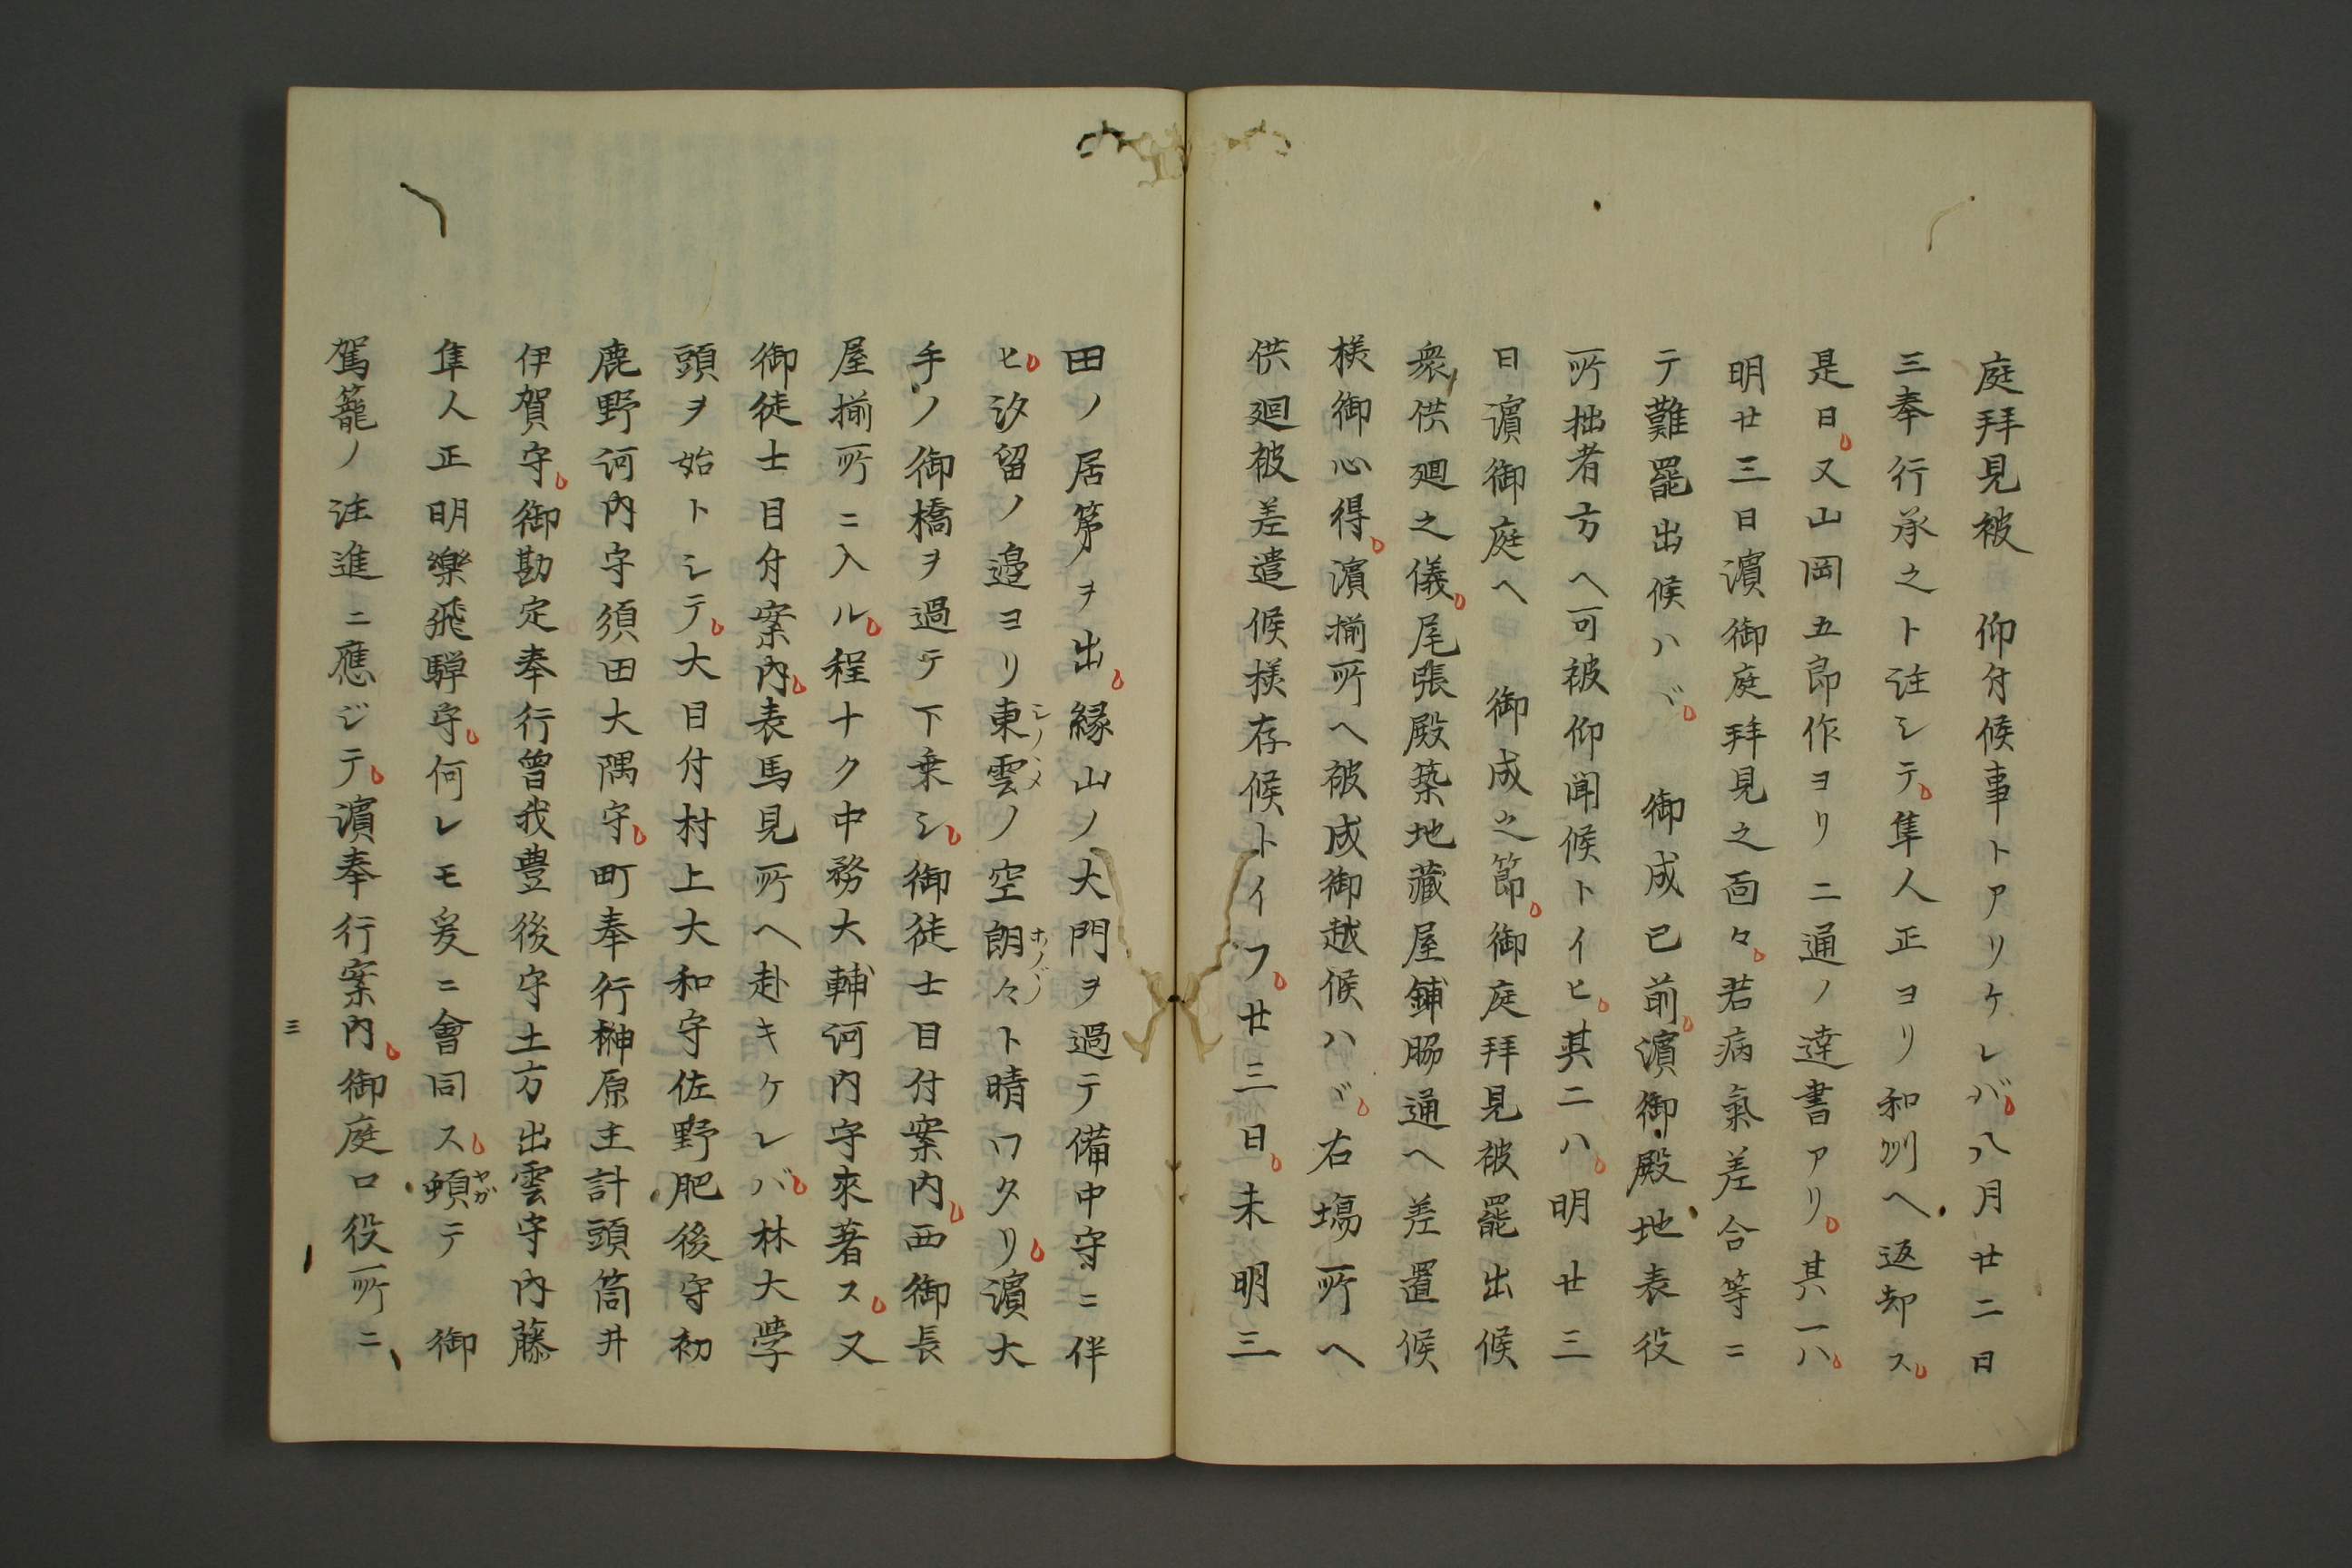 庭拜見被　仰付候事トアリケレバ、八月廿二日
三奉行承之ト註シテ、隼人正ヨリ和州ヘ返却ス、
是日、又山岡五郎作ヨリ二通ノ達書アリ、其一ハ、
明廿三日濵御庭拜見之面々、若病氣差合等ニ
テ難罷出候ハヾ、　御成已前、濵御殿地表役
所拙者方ヘ可被仰聞候トイヒ、其二ハ、明廿三
日濵御庭ヘ　御成之節、御庭拜見被罷出候
衆供廻之儀、尾張殿築地藏屋鋪脇通ヘ差置候
様御心得、濵揃所ヘ被成御越候ハヾ、右塲所ヘ
供廻被差遣候様存候トイフ、廿三日、未明三
田ノ居第ヲ出、縁山ノ大門ヲ過テ備中守ニ伴
ヒ、汐留ノ邉ヨリ東雲シノヽメノ空朗々ホノ〴〵ト晴ワタリ、濵大
手ノ御橋ヲ過テ下乗シ、御徒士目付案内、西御長
屋揃所ニ入ル、程ナク中務大輔河内守來著ス、又
御徒士目付案内、表馬見所ヘ赴キケレバ、林大学
頭ヲ始トシテ、大目付村上大和守佐野肥後守初
鹿野河内守須田大隅守、町奉行榊原主計頭筒井
伊賀守、御勘定奉行曾我豊後守土方出雲守内藤
隼人正明樂飛騨守、何レモ爰ニ會同ス、頓ヤガテ　御
駕籠ノ注進ニ應ジテ、濵奉行案内、御庭口役所ニ
三